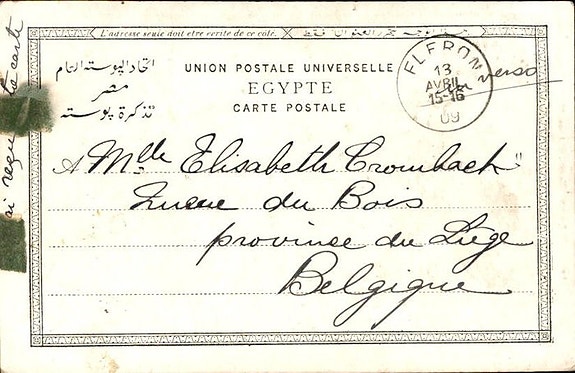 L'adresse seule doit être écrite de ce côté.
اتحاد البوسته العام
مصر
تذكرة بوسته
UNION POSTALE UNIVERSELLE
EGYPTE
CARTE POSTALE
FLERON
13
AVRIL
15-16
09
verso
A Melle Elisabeth Crombach
Queue du Bois
province du Liège
Belgique
ai reçu ta carte